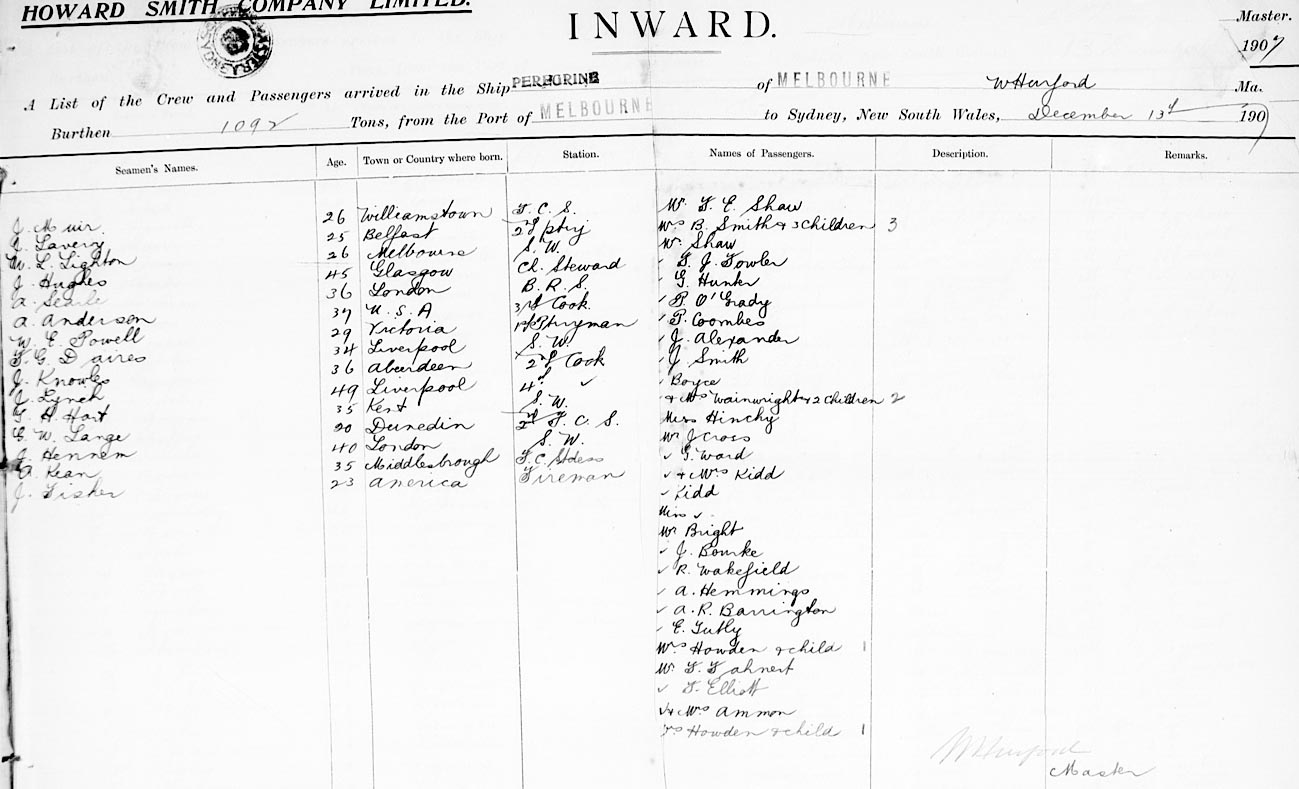 HOWARD SMITH COMPANY LIMITED.
INWARD.
Master.
1907
A List of the Crew and Passengers arrived in the Ship PEREGRINE of MELBOURNE W Hurford Ma.
Burthen 1092 Tons, from the Port of MELBOURNE to Sydney, New South Wales, December 13th 1907
Seamen's Names. Age. Town or Country where born. Station. Names of Passengers. Description. Remarks.
J. Muir 26 Williamstown F. C. S. Mr F. E. Shaw
J. Lavery 25 Belfast 2nd Ptry Mrs B. Smith & 3 Children 3
W. L. Lighton 26 Melbourne S. W. Mr Shaw
J. Hughes 45 Glasgow Ch. Steward ✓ F. J. Fowler
A. Searle 36 London B. R. S. ✓ G. Hunter
A. Anderson 37 U. S. A 3rd Cook ✓ P. O'Grady
W. E. Powell 29 Victoria 1st Ptryman ✓ P. Coombes
F. G. Daires 34 Liverpool S. W. ✓ J. Alexander
J. Knowles 36 Aberdeen 2nd Cook ✓ J. Smith
J. Lynch 49 Liverpool 4th ✓ ✓ Boyce
G. H. Hart 35 Kent S. W. & Mrs Wainwright & 2 Children 2
G. W. Lange 20 Dunedin 2nd F. C. S. Miss Hinchy
J. Hennem 40 London S. W. Mr J Cross
A. Kean 35 Middlesbrough F. C. Stdess ✓ G. Ward
J. Fisher 23 America Fireman ✓ & Mrs Kidd
✓ Kidd
Miss ✓
Mr Bright
✓ J. Bourke
✓ R. Wakefield
✓ A. Hemmings
✓ A. R. Barrington
✓ E. Tutly
Mrs Howden & child 1
Mr F. Fahnert
✓ F. Elliott
✓ & Mrs Ammon
Mrs Howden & child 1
W Hurford
Master